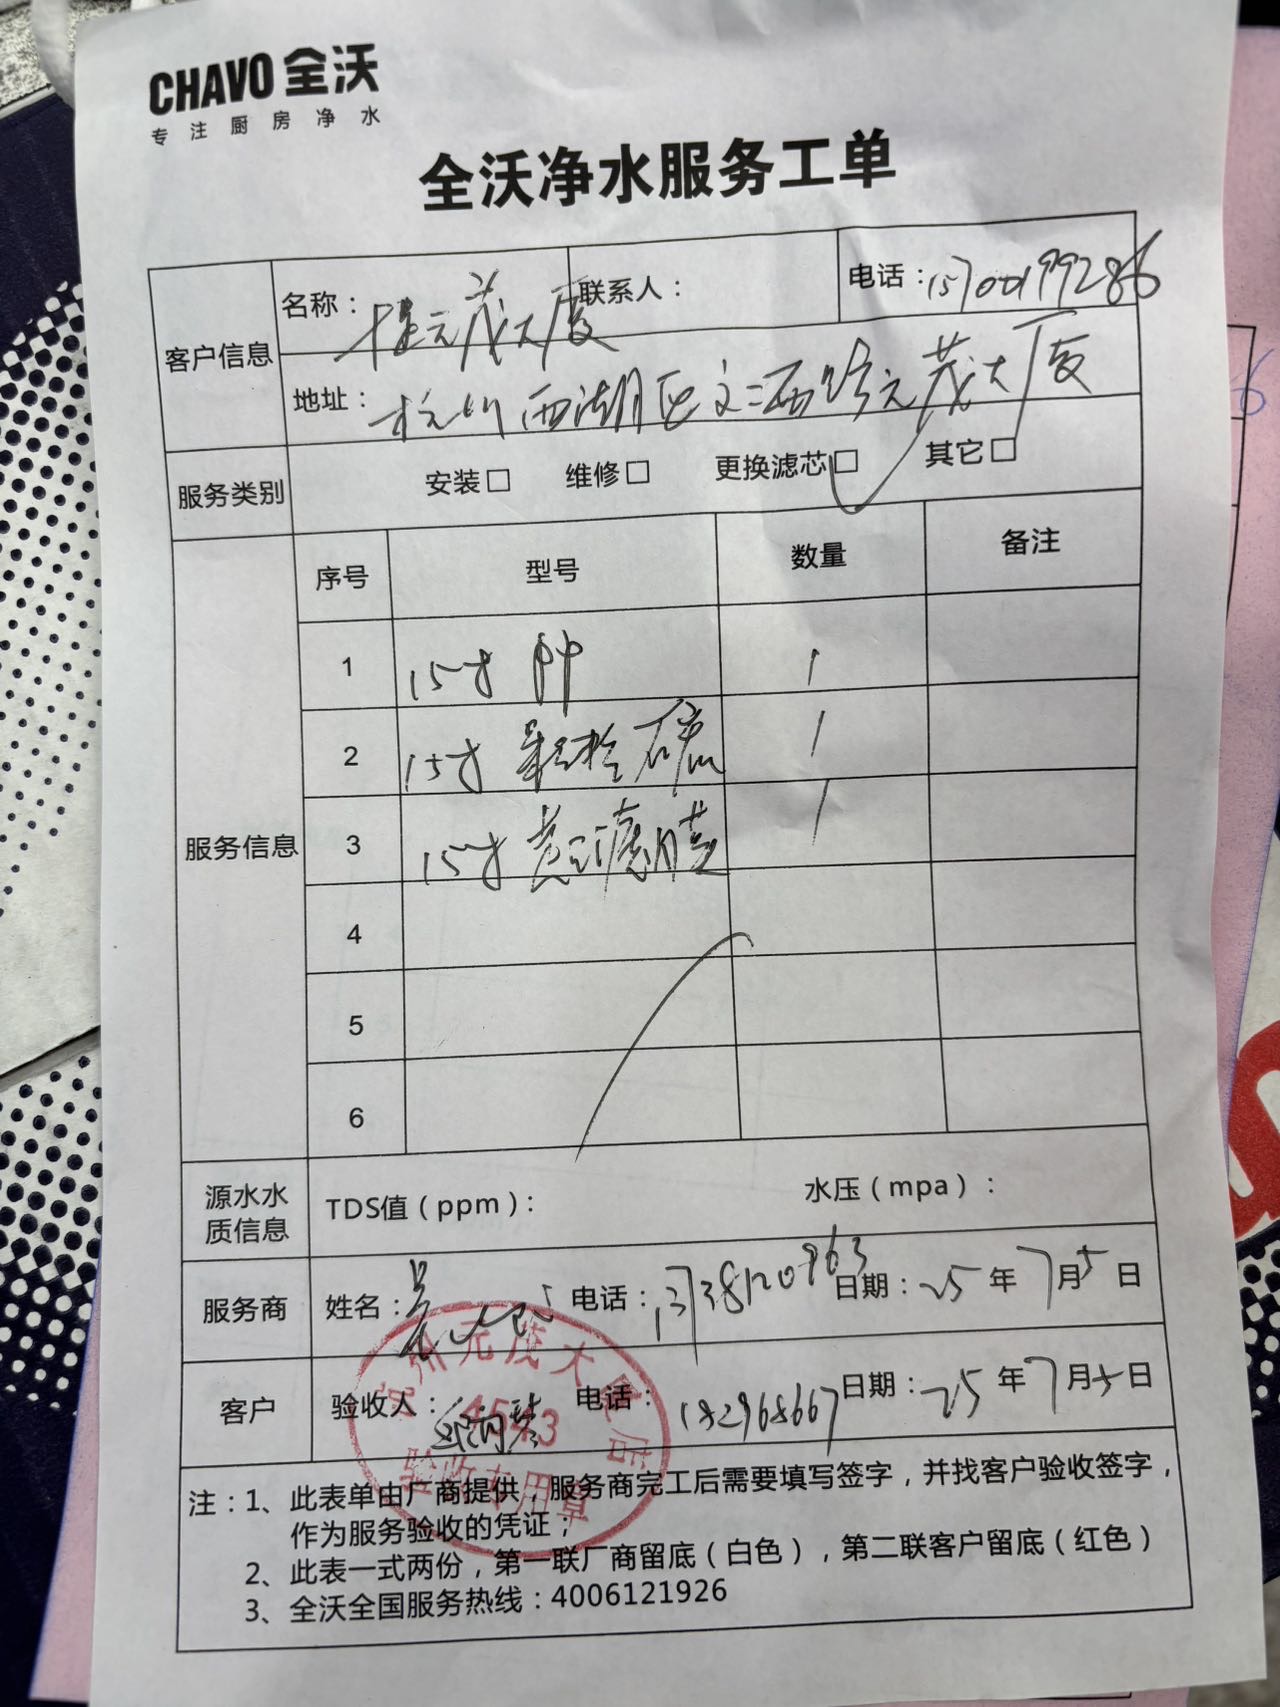 CHAVO 全沃
专注厨房净水
全沃净水服务工单
客户信息 名称： 元茂大厦 联系人： 电话：15700199286
地址：杭州西湖区文二西路元茂大厦
服务类别 安装□ 维修□ 更换滤芯□ 其它□
服务信息 序号 型号 数量 备注
1 15寸 PP 1
2 15寸 颗粒碳 1
3 15寸 滤膜 1
4
5
6
源水水质信息 TDS值（ppm）： 水压（mpa）：
服务商 姓名：吴 电话： 日期：25年7月5日
客户 验收人： 电话：182968667 日期：25年7月5日
州元茂大厦店
4543
验收专用章
注：1、此表单由厂商提供，服务商完工后需要填写签字，并找客户验收签字，
作为服务验收的凭证；
2、此表一式两份，第一联厂商留底（白色），第二联客户留底（红色）
3、全沃全国服务热线：4006121926